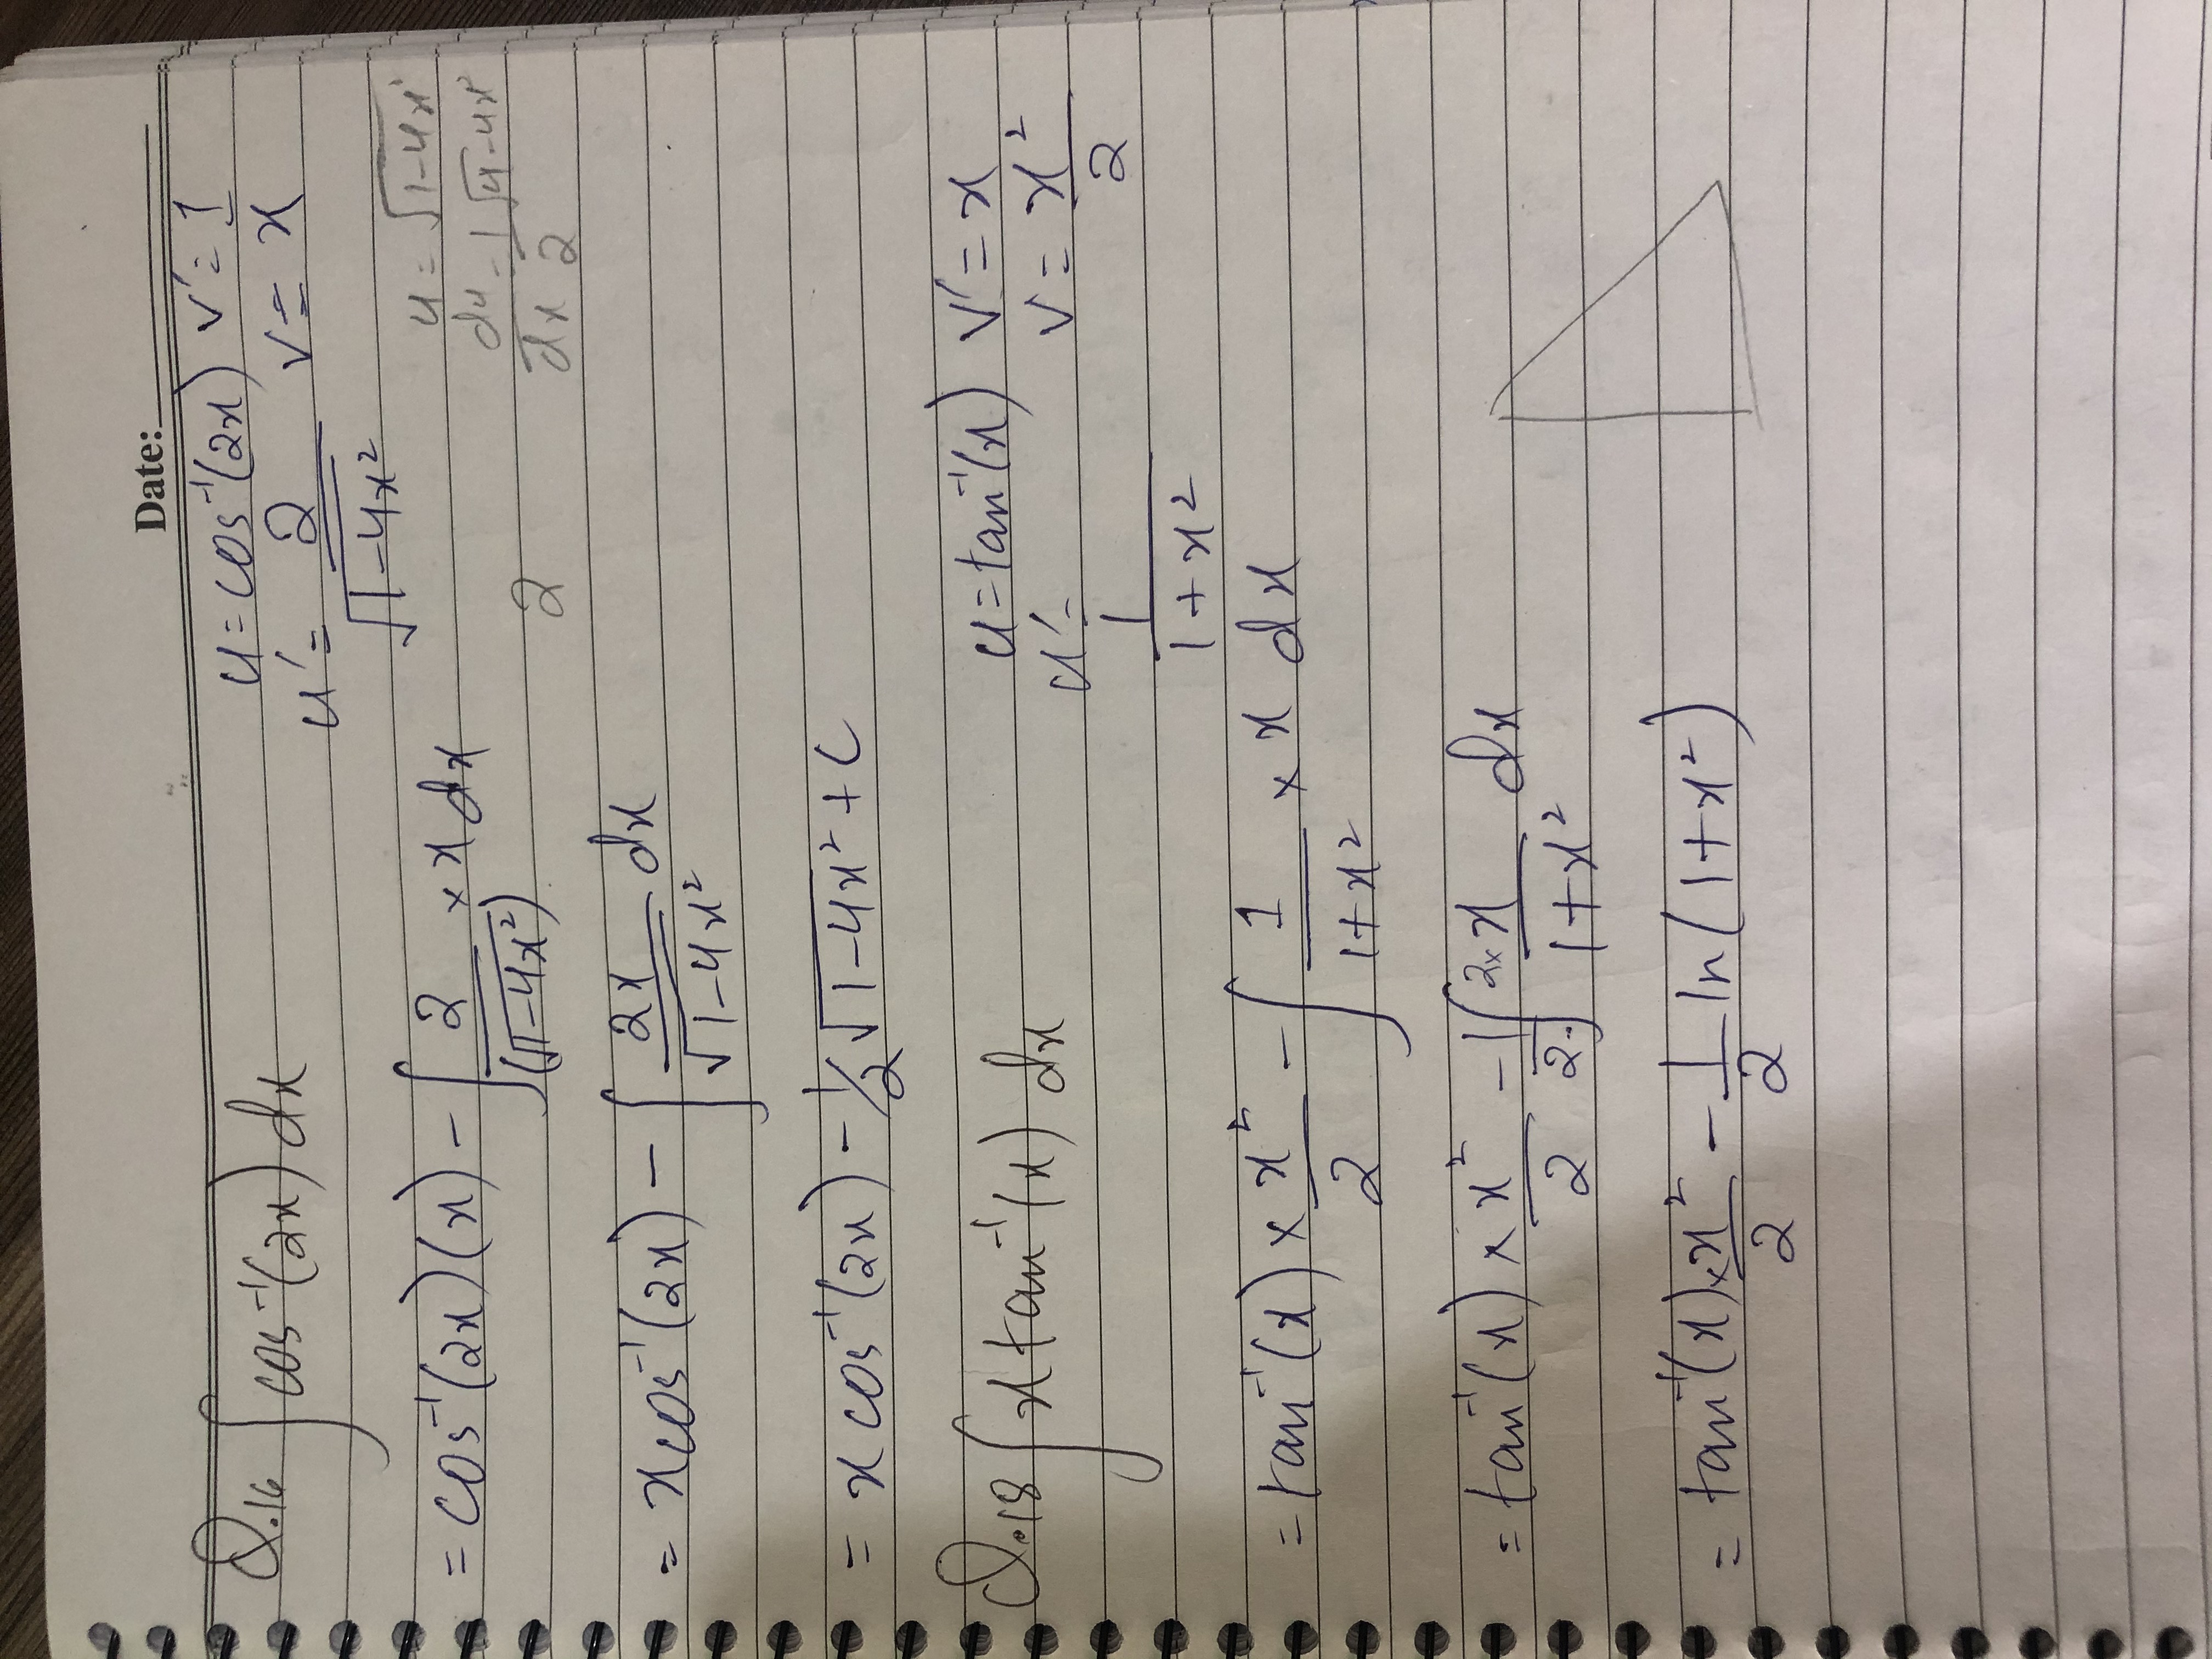 Date:
Q.16 ∫ cos⁻¹(2x) dx
u = cos⁻¹(2x) v' = 1
u' = 2/√(1-4x²) v = x
= cos⁻¹(2x)(x) - ∫ 2/(√1-4x²) × x dx
u = √(1-4x²)
du/dx = 1/2 √4-4x²
2
= x cos⁻¹(2x) - ∫ 2x/√(1-4x²) dx
= x cos⁻¹(2x) - 1/2 √(1-4x²) + C
Q.18 ∫ x tan⁻¹(x) dx
u = tan⁻¹(x) v' = x
u' = 1/(1+x²) v = x²/2
= tan⁻¹(x) × x²/2 - ∫ 1/(1+x²) × x dx
= tan⁻¹(x) × x²/2 - 1/2 ∫ 2×x/(1+x²) dx
= tan⁻¹(x) × x²/2 - 1/2 ln(1+x²)